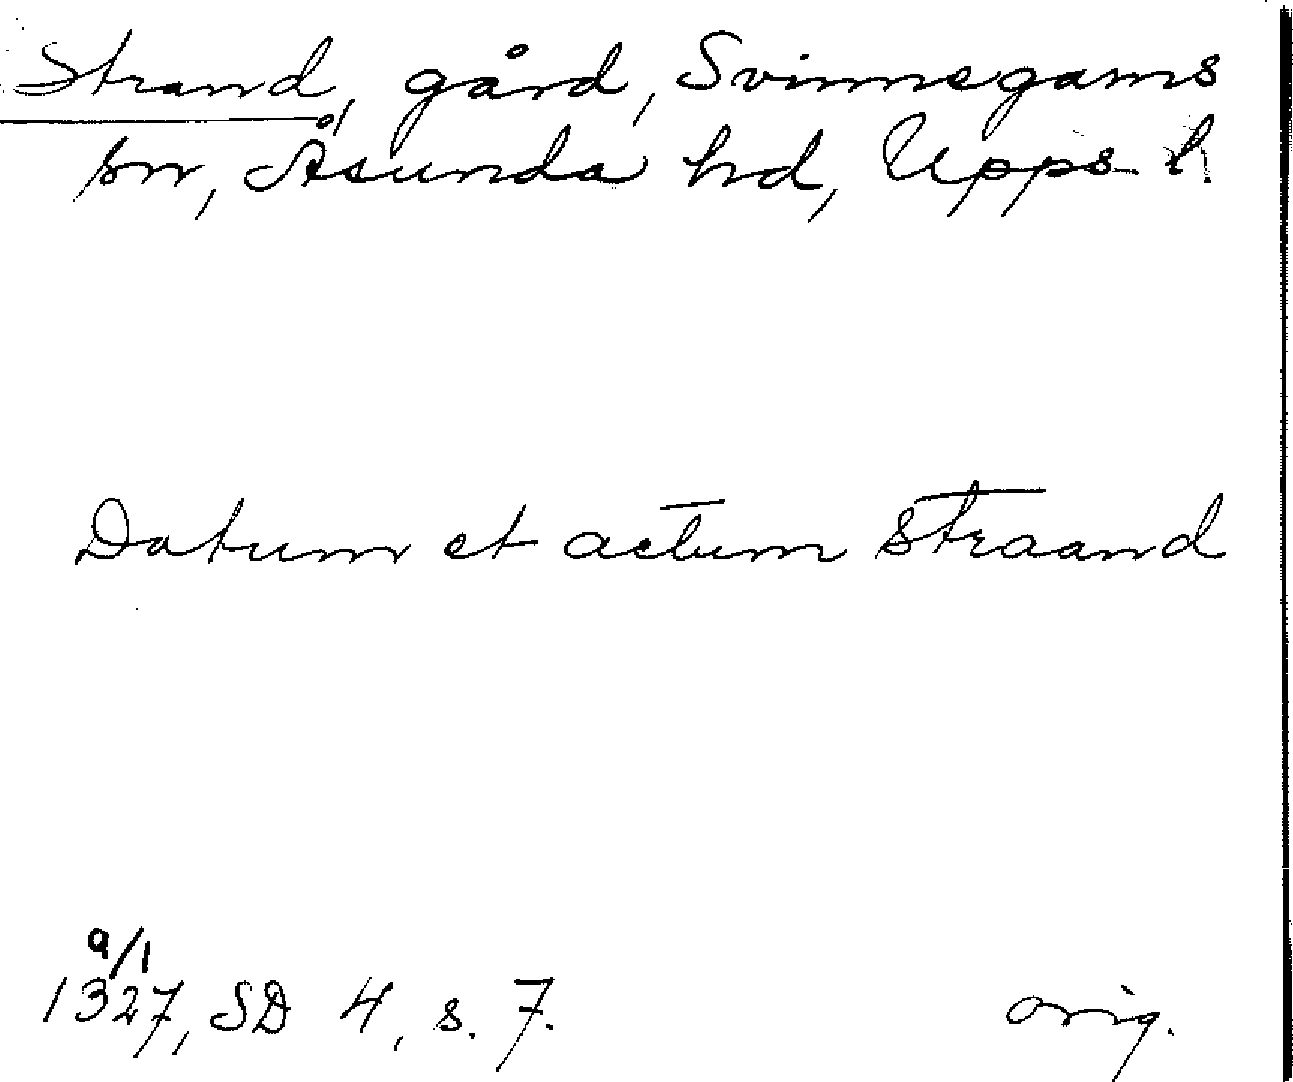 Strand, gård, Svinnegarns
sn, Åsunda hd, Upps. l.
Datum et actum straand
9/1
1327, SD 4, s. 7.
orig.